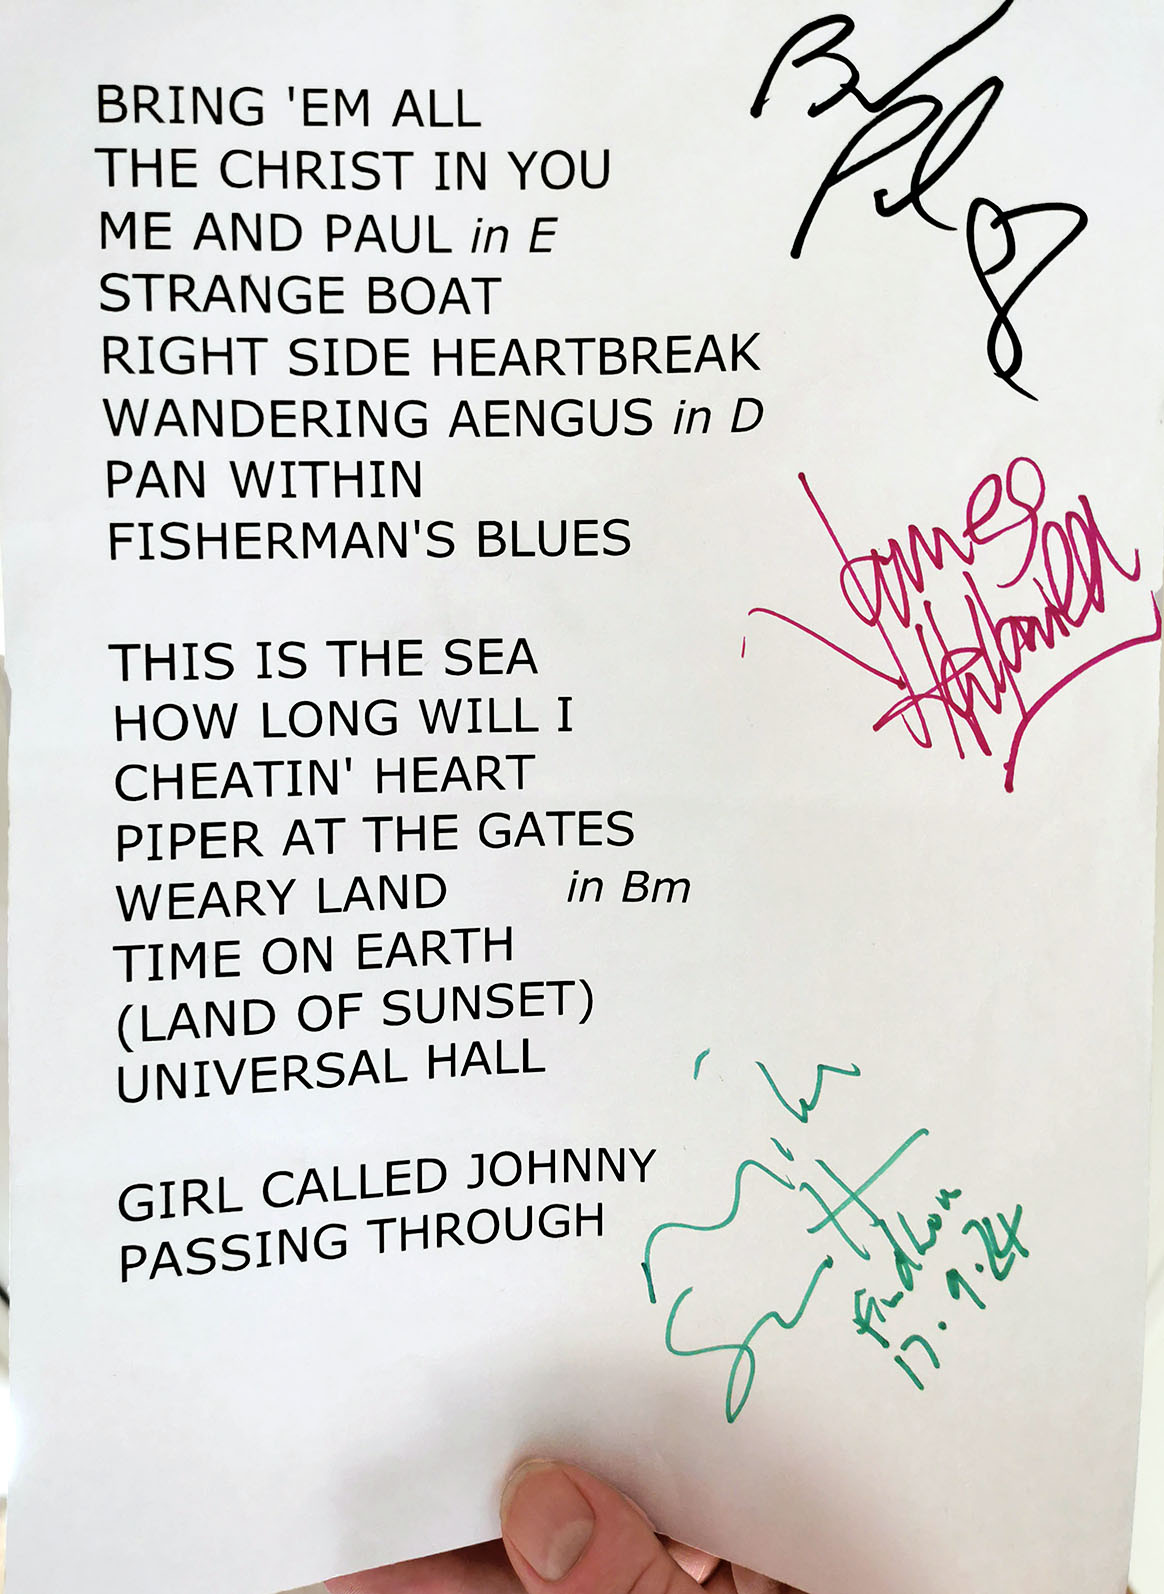 BRING 'EM ALL
THE CHRIST IN YOU
ME AND PAUL in E
STRANGE BOAT
RIGHT SIDE HEARTBREAK
WANDERING AENGUS in D
PAN WITHIN
FISHERMAN'S BLUES
THIS IS THE SEA
HOW LONG WILL I
CHEATIN' HEART
PIPER AT THE GATES
WEARY LAND in Bm
TIME ON EARTH
(LAND OF SUNSET)
UNIVERSAL HALL
GIRL CALLED JOHNNY
PASSING THROUGH
James
Findhorn
17.9.24